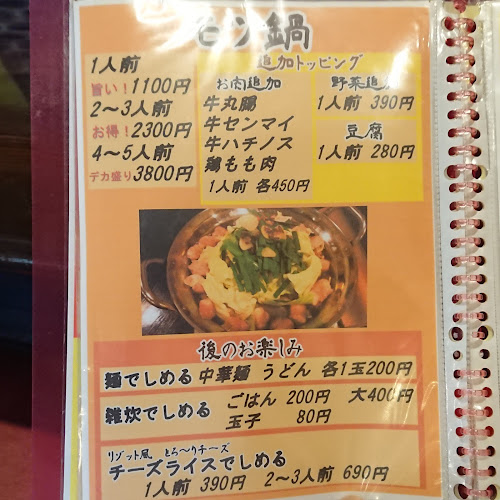 モツ鍋
1人前
旨い！1100円
2〜3人前
お得！2300円
4〜5人前
デカ盛り3800円
追加トッピング
お肉追加
牛丸腸
牛センマイ
牛ハチノス
鶏もも肉
1人前 各450円
野菜追
1人前 390円
豆腐
1人前 280円
後のお楽しみ
麺でしめる 中華麺 うどん 各1玉200円
雑炊でしめる ごはん 200円 大400円
玉子 80円
リゾット風 とろ〜りチーズ
チーズライスでしめる
1人前 390円 2〜3人前 690円